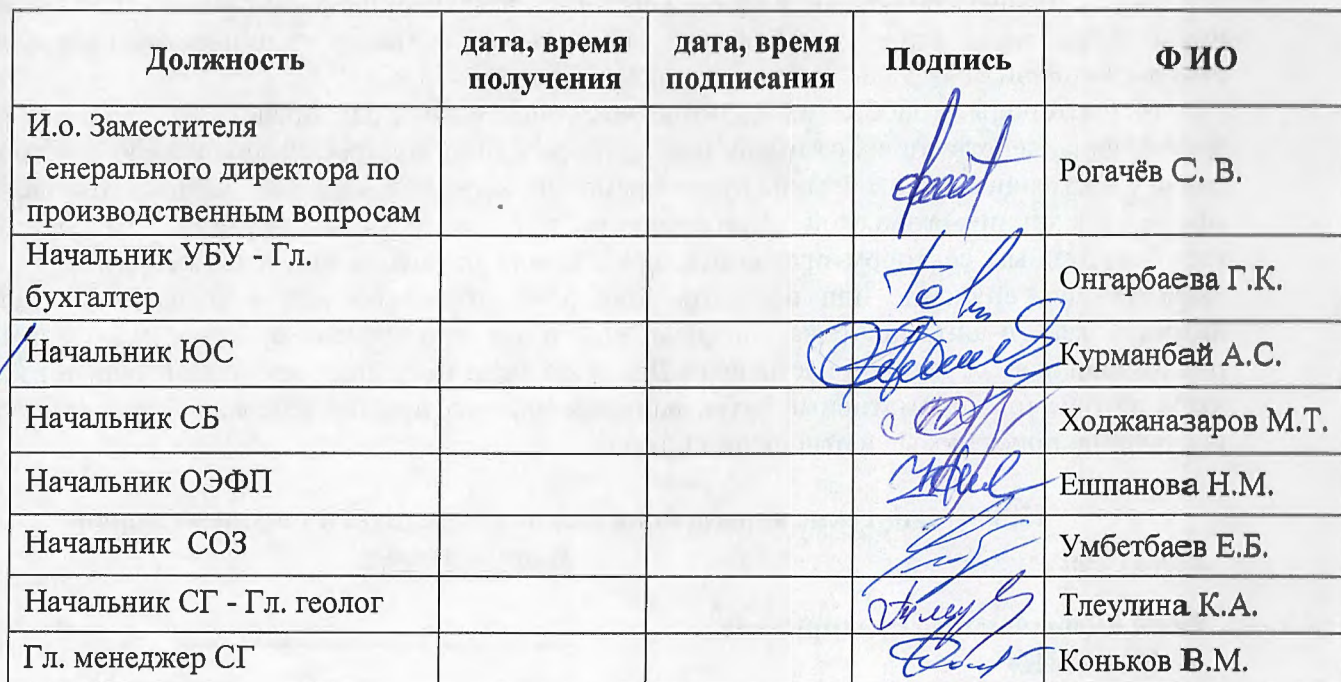 Должность дата, время получения дата, время подписания Подпись ФИО
И.о. Заместителя
Генерального директора по
производственным вопросам Рогачёв С. В.
Начальник УБУ - Гл.
бухгалтер Онгарбаева Г.К.
Начальник ЮС Курманбай А.С.
Начальник СВ Ходжаназаров М.Т.
Начальник ОЭФП Ешпанова Н.М.
Начальник СОЗ Умбетбаев Е.Б.
Начальник СГ - Гл. геолог Тлеулина К.А.
Гл. менеджер СГ Коньков В.М.